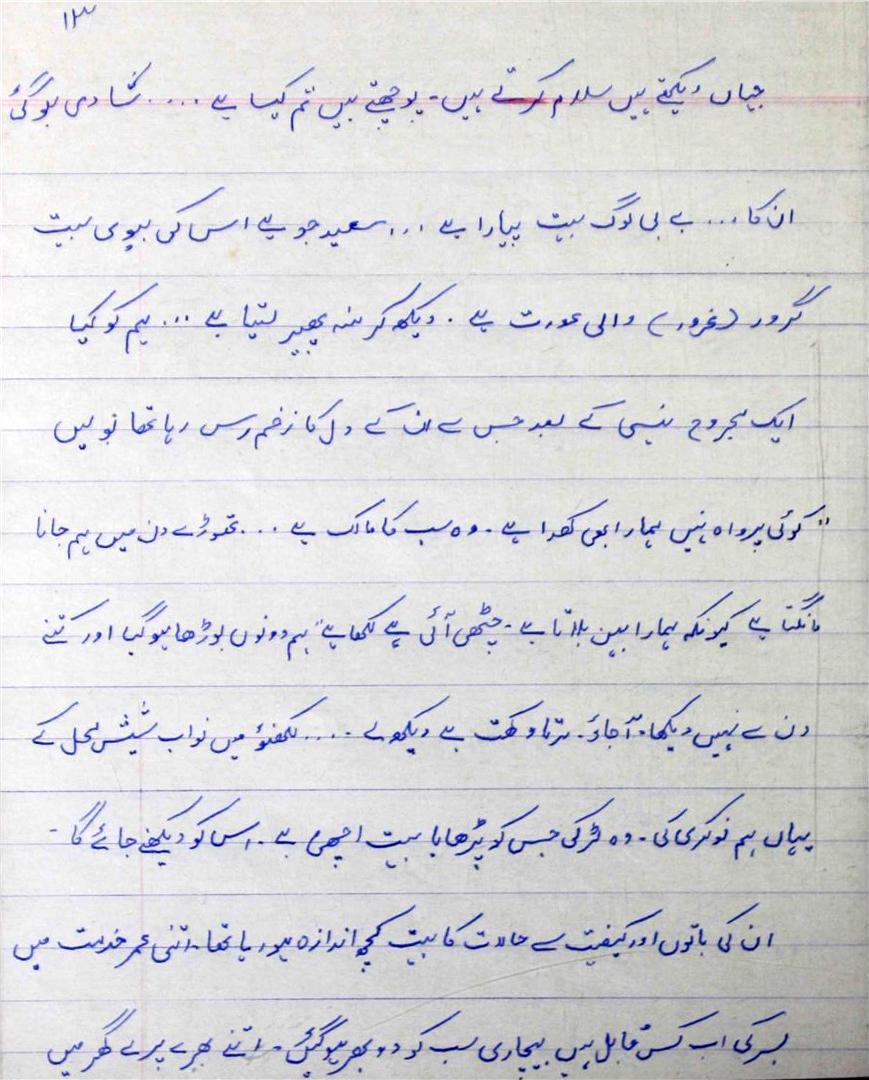 ۱۳
جہاں دیکھتے ہیں سلام کرتے ہیں۔ پوچھتے ہیں تم کیسا ہے .... شادی ہوگئی
ان کا ... بے بی لوگ بہت پیارا ہے ... سعید جو ہے اس کی بیوی بہت
گرور (غرور) والی عورت ہے۔ دیکھ کر منہ پھیر لیتا ہے ... ہم کو کیا
ایک مجروح ہنسی کے بعد جس سے ان کے دل کا زخم رس رہا تھا بولیں
"کوئی پرواہ نہیں ہمارا بھی کھدا ہے۔ وہ سب کا مالک ہے ... تھوڑے دن میں ہم جانا
مانگتا ہے کیونکہ ہمارا بہن بلاتا ہے۔ چٹھی آئی ہے لکھا ہے" ہم دونوں بوڑھا ہوگیا اور کتنے
دن سے نہیں دیکھا۔ آجاؤ۔ مرتا وکت ہے دیکھ لے .... لکھنؤ میں نواب شیش محل کے
یہاں ہم نوکری کی۔ وہ لڑکی جس کو پڑھایا بہت اچھی ہے۔ اس کو دیکھنے جائے گا۔
ان کی باتوں اور کیفیت سے حالات کا بہت کچھ اندازہ ہو رہا تھا۔ اتنی عمر خدمت میں
بسر کی اب کس قابل ہیں بیچاری سب کو دوبھر ہوگئیں۔ اتنے بھرے پرے گھر میں